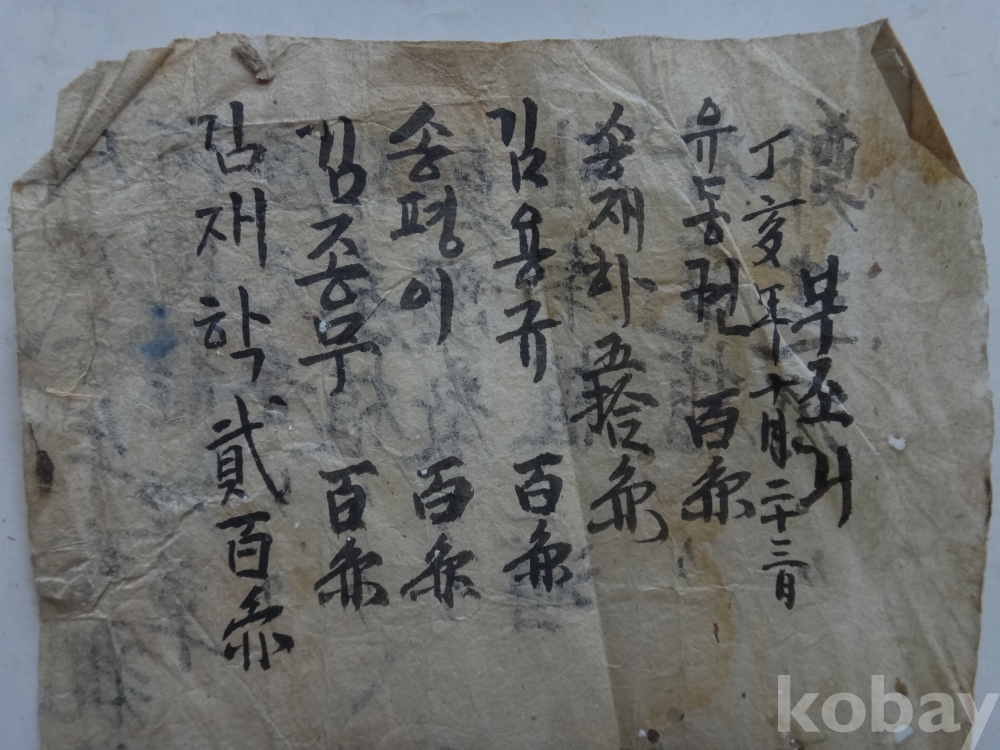 부조기
丁亥年十月二十三日
유동권 百兩
송재하 五拾兩
김용규 百兩
송평이 百兩
김종무 百兩
김재학 貳百兩
kobay